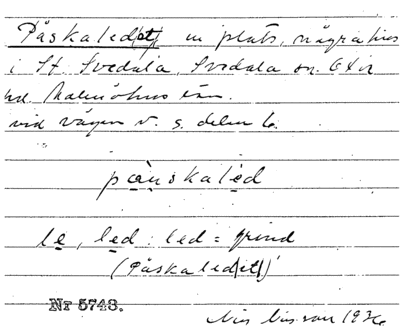 Påskaled(et) m plats, några hus
i St. Svedala, Svedala sn. Oxie
hd. Malmöhus län.
vid vägen v. s. delen 6.
påa̤nskalèd
le, led : led = grind
(Påskaled(et))
Nr 5748.
Nils Nilsson 1936